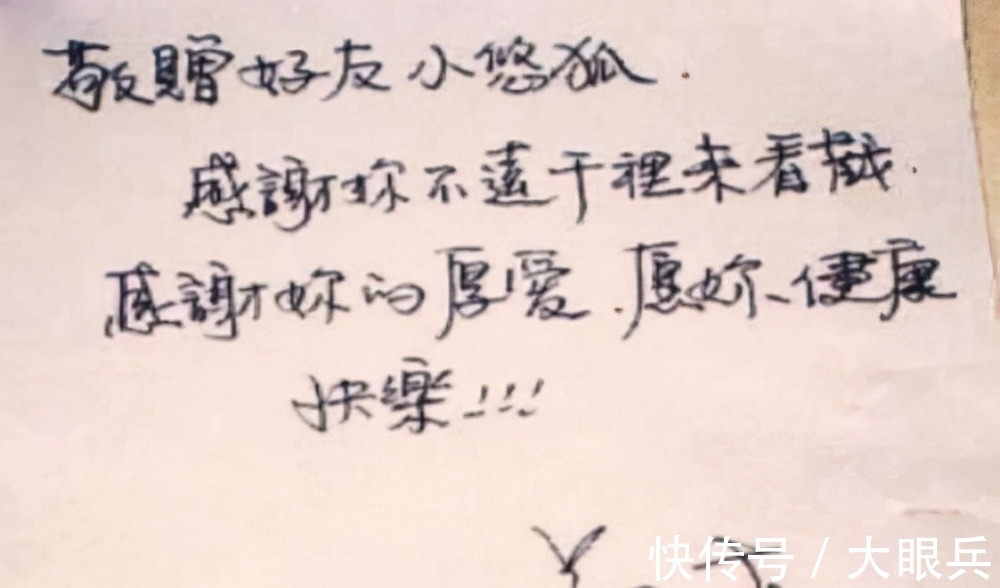 敬贈好友小悠狐.
感謝妳不遠千裡來看戲.
感謝妳的厚爱.愿妳、健康
快樂!!!
快传号/大眼兵